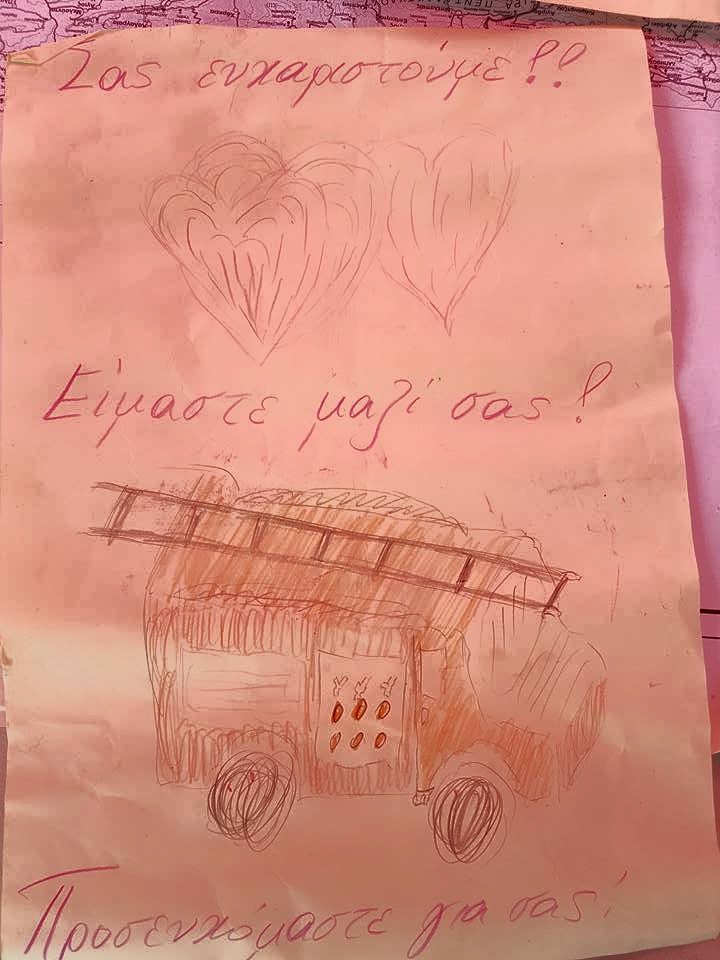 Σας ευχαριστούμε!!
Είμαστε μαζί σας!
Προσευχόμαστε για σας!